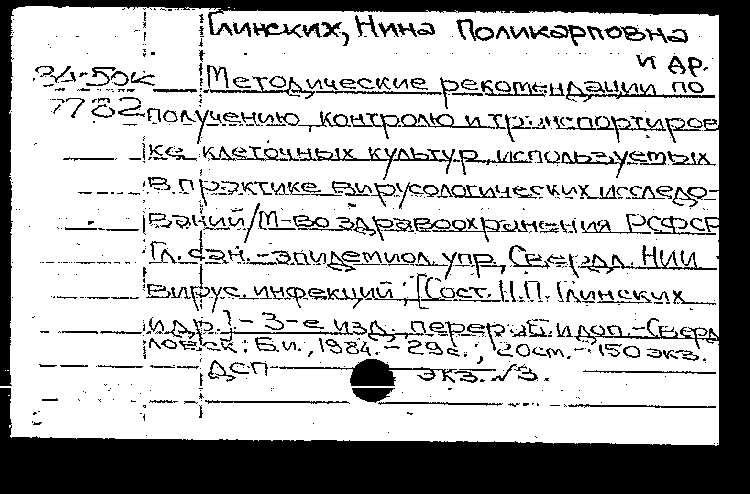 Глинских, Нина Поликарповна
и др.
84-50к Методические рекомендации по
7782 получению, контролю и транспортиров
ке клеточных культур, используемых
в практике вирусологических исследо-
ваний/М-во здравоохранения РСФСР
Гл. сан.-эпидемиол. упр, Свердл. НИИ
вирус. инфекций; [Сост. Н.П. Глинских
и др.] - 3-е изд. перераб. и доп. - Сверд
ловск: Б.и., 1984. - 29 с.; 20 см. - 150 экз.
ДСП экз. √3.